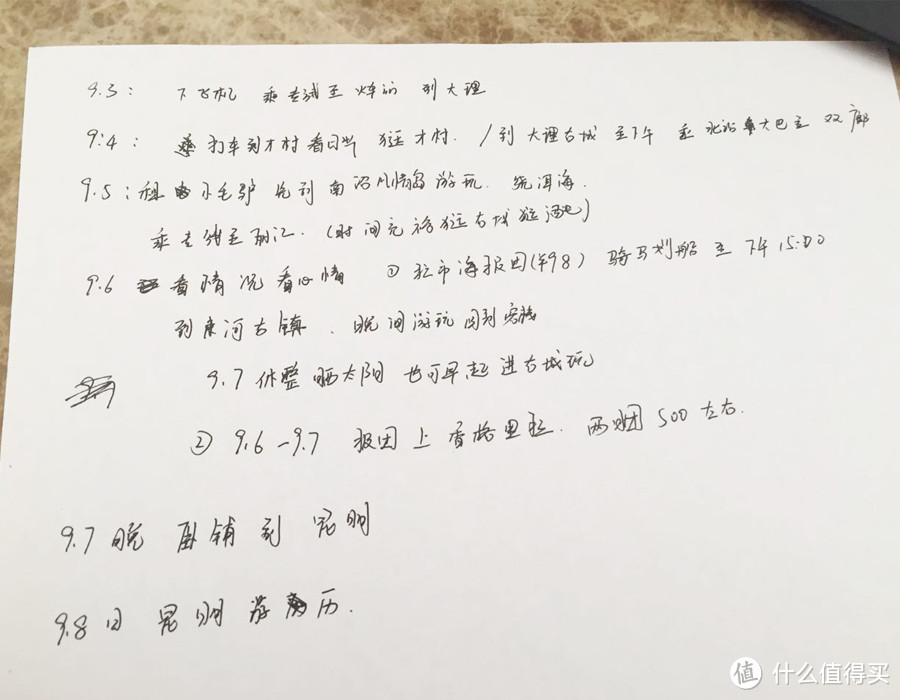 9.3: 下飞机 乘专线至火车站 到大理
9.4: 打车到才村看日出 逛才村. / 到大理古城 至下午 去 北站 乘大巴至 双廊
9.5: 租 小毛驴 先到南诏风情岛游玩. 绕洱海.
乘专线至丽江. (时间充裕逛古城逛酒吧)
9.6 看情况看心情 ① 拉市海报团(¥98) 骑马划船 至 下午 15:00
到束河古镇. 晚间游玩 回到客栈
9.7 休整 晒太阳 也可早起进古城玩
② 9.6-9.7 报团上香格里拉. 两日团 500 左右.
9.7 晚 卧铺到昆明
9.8日 昆明游历.
值 什么值得买